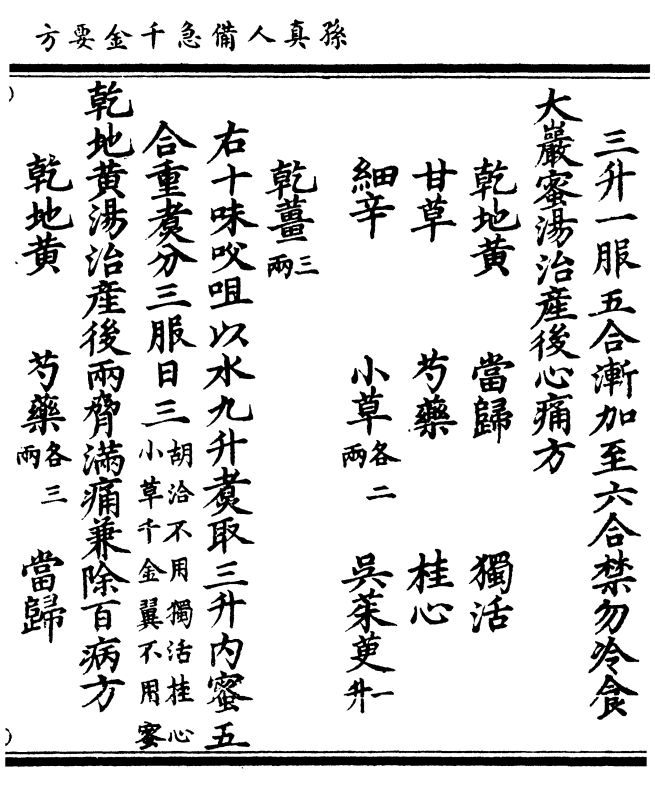 孫真人備急千金要方
三升一服五合漸加至六合禁勿冷食
大巖蜜湯治產後心痛方
乾地黃 當歸 獨活
甘草 芍藥 桂心
細辛 小草各二兩 吳茱萸一升
乾薑三兩
右十味㕮咀以水九升煑取三升內蜜五
合重煑分三服日三胡洽不用獨活桂心
小草千金翼不用蜜
乾地黃湯治產後兩脅滿痛兼除百病方
乾地黃 芍藥各三兩 當歸